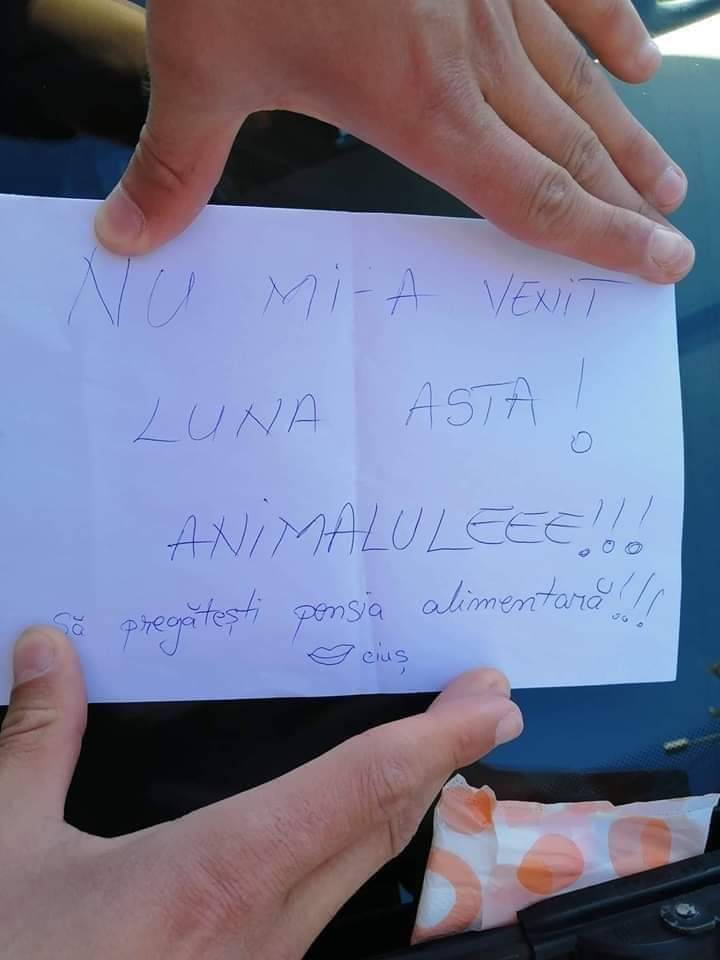 NU MI-A VENIT
LUNA ASTA!
ANIMALULEEE!!!
Să pregătești pensia alimentară!!!
ciuș